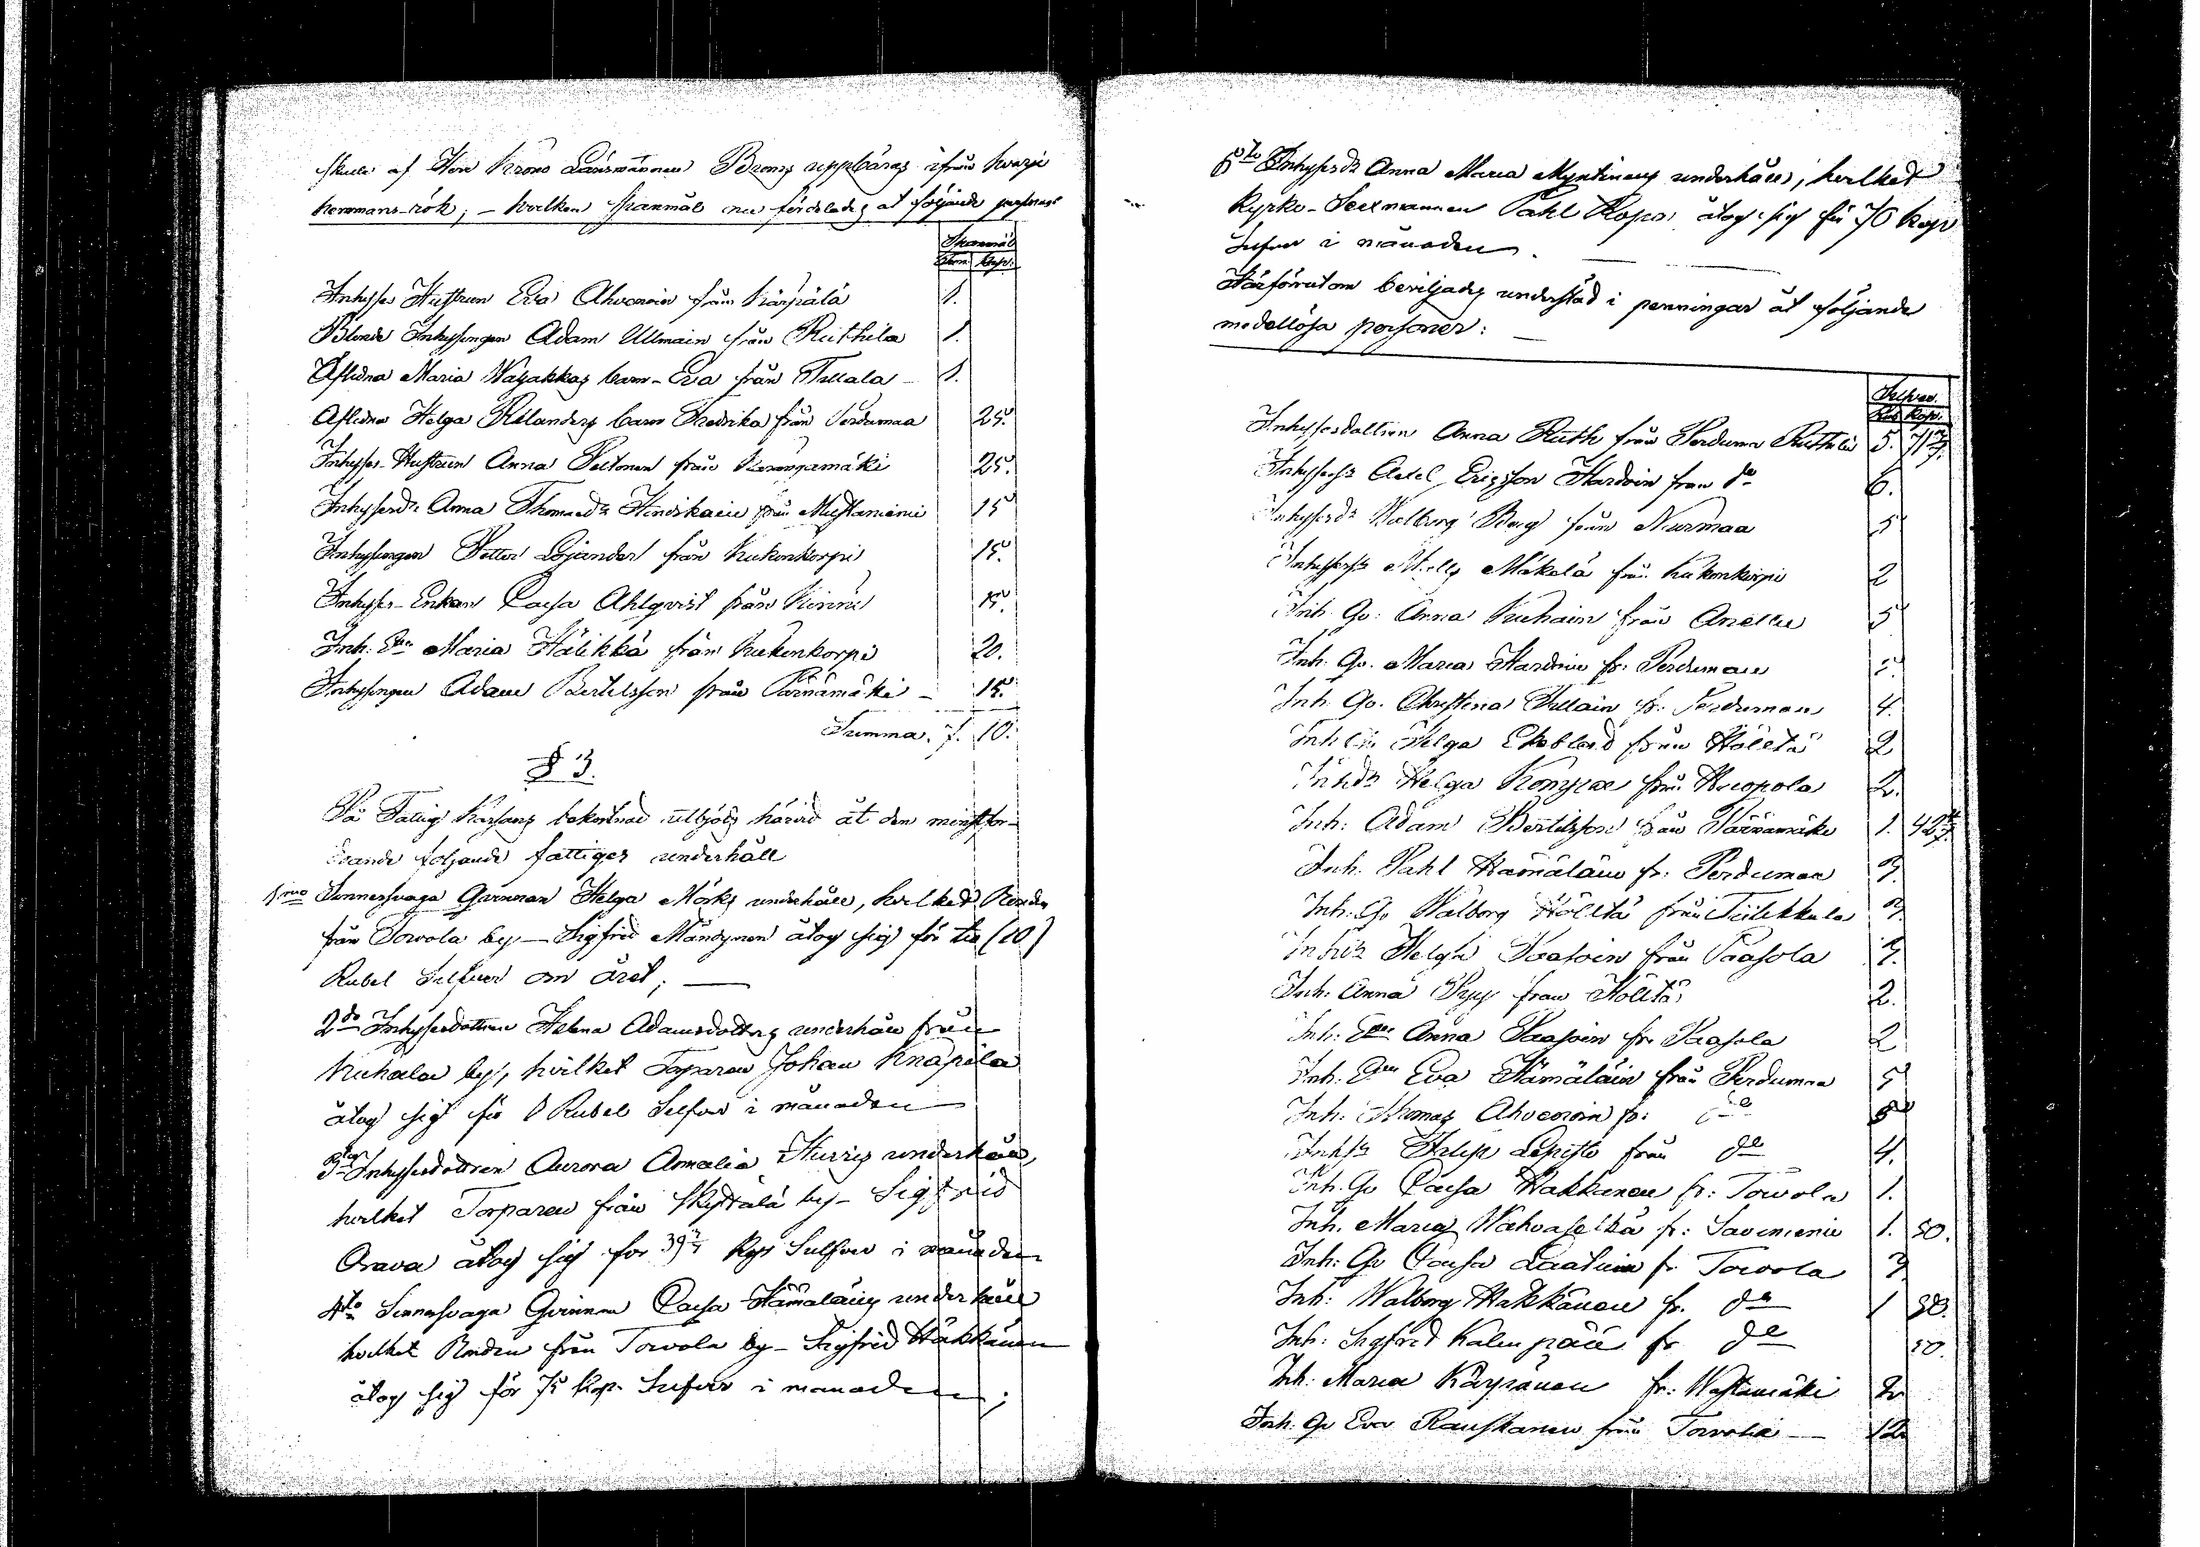 skulle af Herr Krono Länsmannen Brons uppbäras ifrån hvarje
hemmans-rök; – hvilken spanmål nu fördelades åt följande personer
Spanmål
Tunn. Kapp.
Inhyses Hustrun Eva Ahvenain från Kärpälä 1.
Blinde Inhysingen Adam Ullmain från Ruthila 1.
Aflidna Maria Wasakkas barn – Eva från Tillala – 1.
Aflidna Helga Relanders barn Fredrika från Perdumaa 25.
Inhyses-Hustrun Anna Peltonen från Korongamäki 25.
Inhysesd:r Anna Thomasd:r Hinskain från Mustaniemi 15
Inhysingen Petter Gjander från Kukonkorpi 15.
Inhyses-Enkan Caisa Ahlqvist från Kinni 15.
Inh: E:an Maria Hälikkä från Kukonkorpi 20.
Inhysingen Adam Bertilsson från Pärnämäki – 15.
Summa. 7. 10.
§ 3.
På Fattig Kassans bekostnad utbjöds härvid åt den minstfor-
drande följande fattigas underhåll
1:mo Sinnessvaga Qvinnan Helga Mörks underhåll, hvilket Bonden
från Towola by – Sigfrid Mändynen åtog sig för tio (10)
Rubel Silfver om året; —
2:do Inhysesdottren Helena Adamsdotters underhåll från
Kuhala by, hvilket Torparen Johan Knapila
åtog sig för 1 Rubel Silfver i månaden —
3:tio Inhysesdottren Aurora Amalia Hurrys underhåll,
hvilket Torparen från Skyttälä by – Sigfrid
Orava åtog sig för 39 Kop Silfver i månaden
4:to Sinnessvaga Qvinnan Caisa Hämäläins underhåll
hvilket Bonden från Towola by – Sigfrid Häkkänen
åtog sig för 75 Kop. Silfver i månaden;
5:to Inhysesd:r Anna Maria Myntinens underhåll, hvilket
Kyrko-Sexmannen Påhl Kopo åtog sig för 70 kop
Silfver i månaden.
Härförutom beviljades understöd i penningar åt följande
medellösa personer: —
Silfver.
Rub. Kop.
Inhysesdottren Anna Ruth från Perduma Ruthila 5. 71
Inhyses Axel Ericsson Hardoin från d:o 6.
Inhysesd:r Walborg Berg från Nurmaa 5
Inhyses Mells Mäkelä från Kukonkorpi 2
Inh. Qv: Anna Kuhain från Anttila 5
Inh. Qv. Maria Hardoin fr: Perdumaa 5.
Inh. Qv. Christina Tillain fr: Perdumaa 4.
Inh. Helga Ekeblad från Höltä 2
Inhd:r Helga Konyrae från Kuopola 2.
Inh: Adam Bertilsson från Pärnämäki 1. 42
Inh. Påhl Hämäläin fr: Perdumaa 3.
Inh: Qv Walborg Höltä från Tiilikkala 3
Helga Paasoin från Paasola 3.
Inh: Anna Pyy från Höltä 2.
Inh: E:an Anna Paasoin fr. Paasola 2
Inh: E:an Eva Hämäläin från Perdumaa 5
Inh: Thomas Ahvenoin fr: d:o 5
Inh Philip Lepistö från d:o 4.
Inh. Qv Caisa Hakkanen fr: Towola 1.
Inh. Maria Wähäselkä fr: Saviniemi 1. 50.
Inh: Qv Caisa Laatuin fr Towola 3
Inh: Walborg Häkkänen fr. d:o 1 50.
Inh: Sigfrid Kalmpää fr d:o 50.
Inh: Maria Kärpänen fr: Wastamäki 2
Inh: Qv Eva Rauskanen från Towola — 12